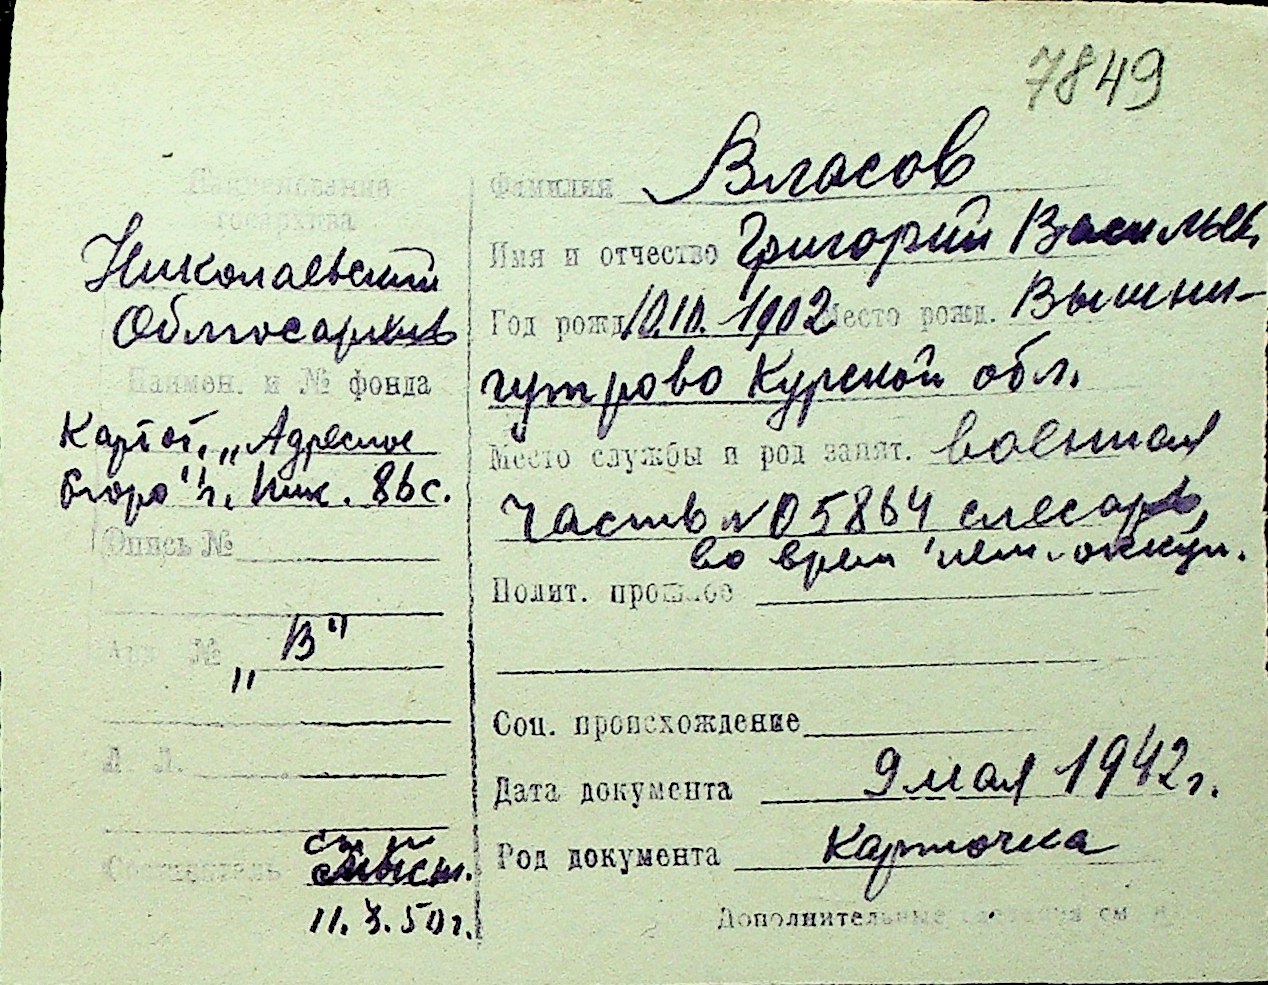 7849
Наименование
госархива
Николаевский
Облгосархив
Наимен. и № фонда
Картот. „Адресное
бюро" г. Ник. 86 с.
Опись №
Арх. № „В"
Л. Л.
Составитель
11.3.50 г.
Фамилия Власов
Имя и отчество Григорий Васильев.
Год рожд. 10.10.1902 Место рожд. Вышни-
гутрово Курской обл.
Место службы и род занят. военная
часть №05864 слесарь,
во врем нем. оккуп.
Полит. прошлое
Соц. происхождение
Дата документа 9 мая 1942 г.
Род документа Карточка
Дополнительные сведения см.